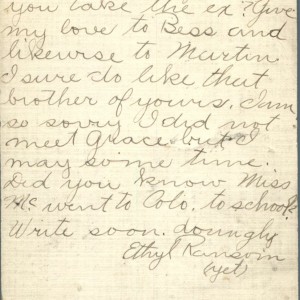 you take the ex? Give
my love to Bess and
likewise to Martin.
I sure do like that
brother of yours. I am
so sorry I did not
meet Grace but I
may some time.
Did you know Miss
Mc went to Colo. to school?
Write soon.
Ethyl Ransom
(yet)